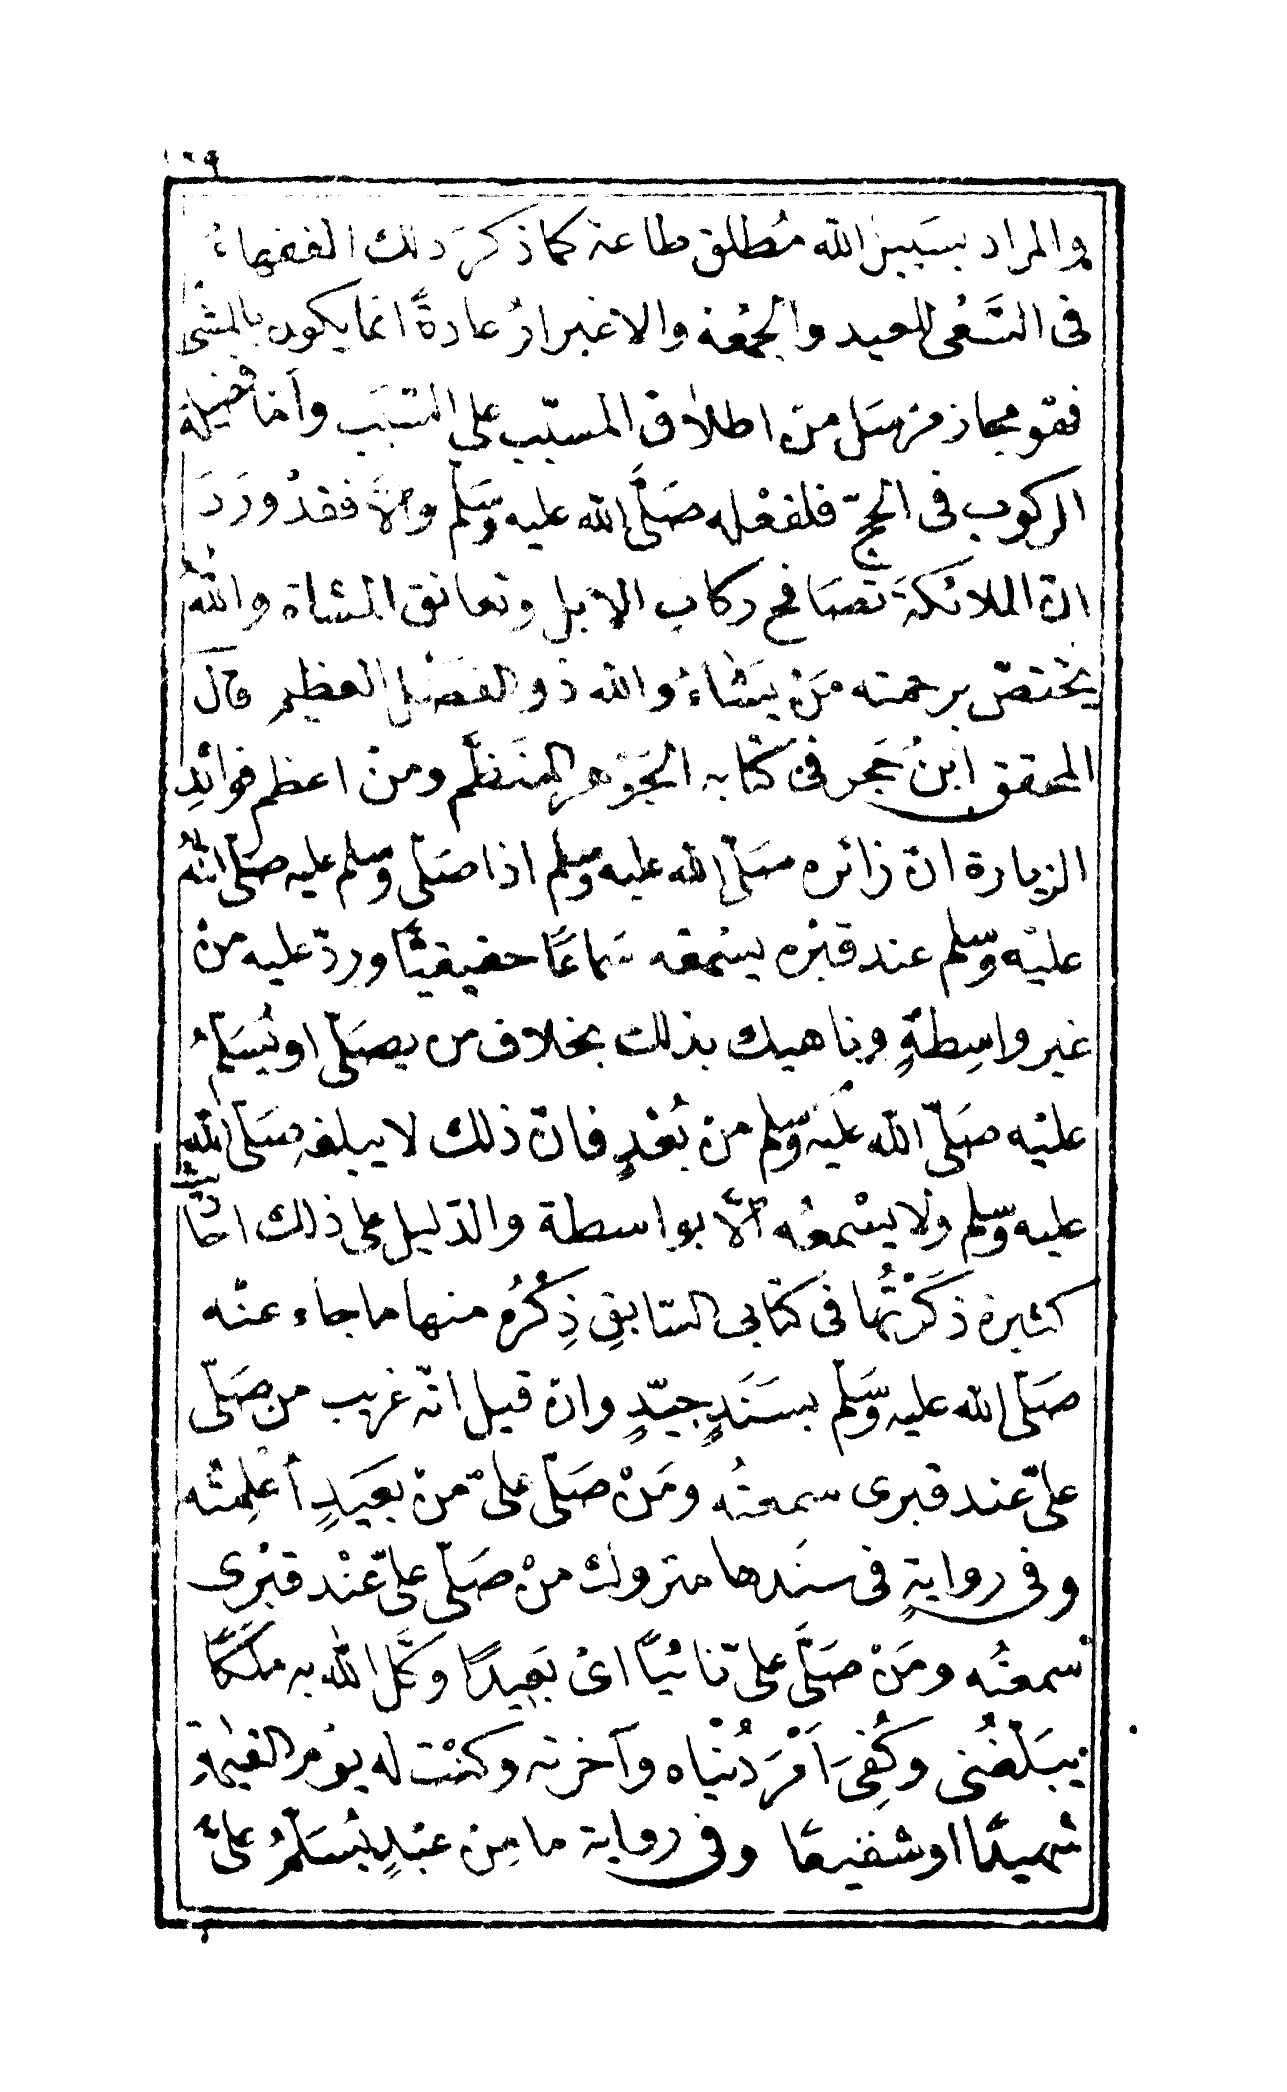 ١٠٩
والمراد بسبيل الله مُطلق طاعته كما ذكرَ ذلك الفقهاءُ
فى السَّعْى للعيد والجمُعة والاغبرارُ عادةً انما يكون بالمشْى
فهو مجاز مرسَل منْ اطلاق المسبّب على السّبَب وأما فضيلة
الركوب فى الحجّ فلفعْله صَلَّى الله عليه وَسَلّم والّا فقدْ وَرَدَ
انّ الملائكةَ تُصَافح ركاب الابل وتعانق المشاة واللهُ
يختصّ برحمته مَنْ يَشاءُ والله ذو الفضْل العظيم قالَ
المحقق ابنُ حَجر فى كتابه الجَوْهر المنَظَّم ومنْ اعظم فوائدِ
الزيارة انّ زائره صَلّى الله عليه وسلم اذا صَلّى وسلم عليه صَلّى اللهُ
عليْه وسلم عند قبْره يسْمعه سَماعًا حقيقيًّا وردّ عليه منْ
غير واسِطةٍ وناهيك بذلك بخلاف من يصَلّى او يُسَلّمُ
عليْه صَلّى الله عَليْه وسلم منْ بُعْدٍ فانّ ذلك لا يبلغه صَلّى الله
عليه وسلم ولا يسْمعُه الّا بواسطة والدّليل على ذلك احَاديث
كثيرة ذكَرْتُها فى كتابى السّابقِ ذِكْرُه منها ما جاء عنْه
صَلّى الله عليه وَسَلّم بسَنَدٍ جيّدٍ وانْ قيل انّه غريب من صَلّى
علىّ عند قبرى سمعتُه ومَنْ صَلّى علىّ منْ بَعَيدٍ أُعْلِمتُه
وفى روايةٍ فى سنَدها متروك منْ صَلّى علىّ عنْد قبْرى
سمعتُه ومَنْ صَلَّى علىّ نائيًا اىْ بَعيدًا وكَّل الله به ملَكًا
يبَلّغُنى وكُفِىَ اَمْرَ دُنْياه وآخرته وكنْت له يوْم القيٰمةِ
شهيدًا او شفيعًا وفى رواية ما مِنْ عبْدٍ يُسَلّمُ علىَّ